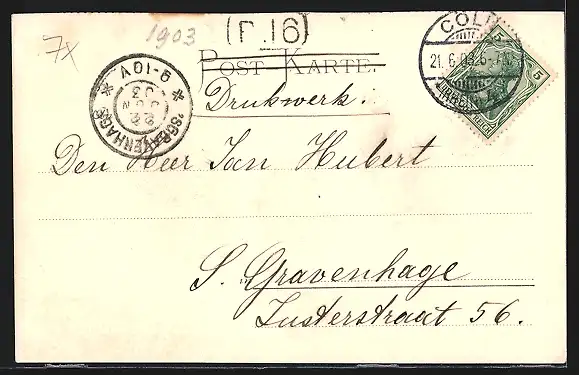 7x
1903
(F.16)
POST KARTE.
Drukwerk.
CÖLN
21.6.03.6-7N
5
5
REICH
'SGRAVENHAGE
22 JUN 03
9-10V
Den Heer Jan Hubert
S. Gravenhage
Susterstraat 56.